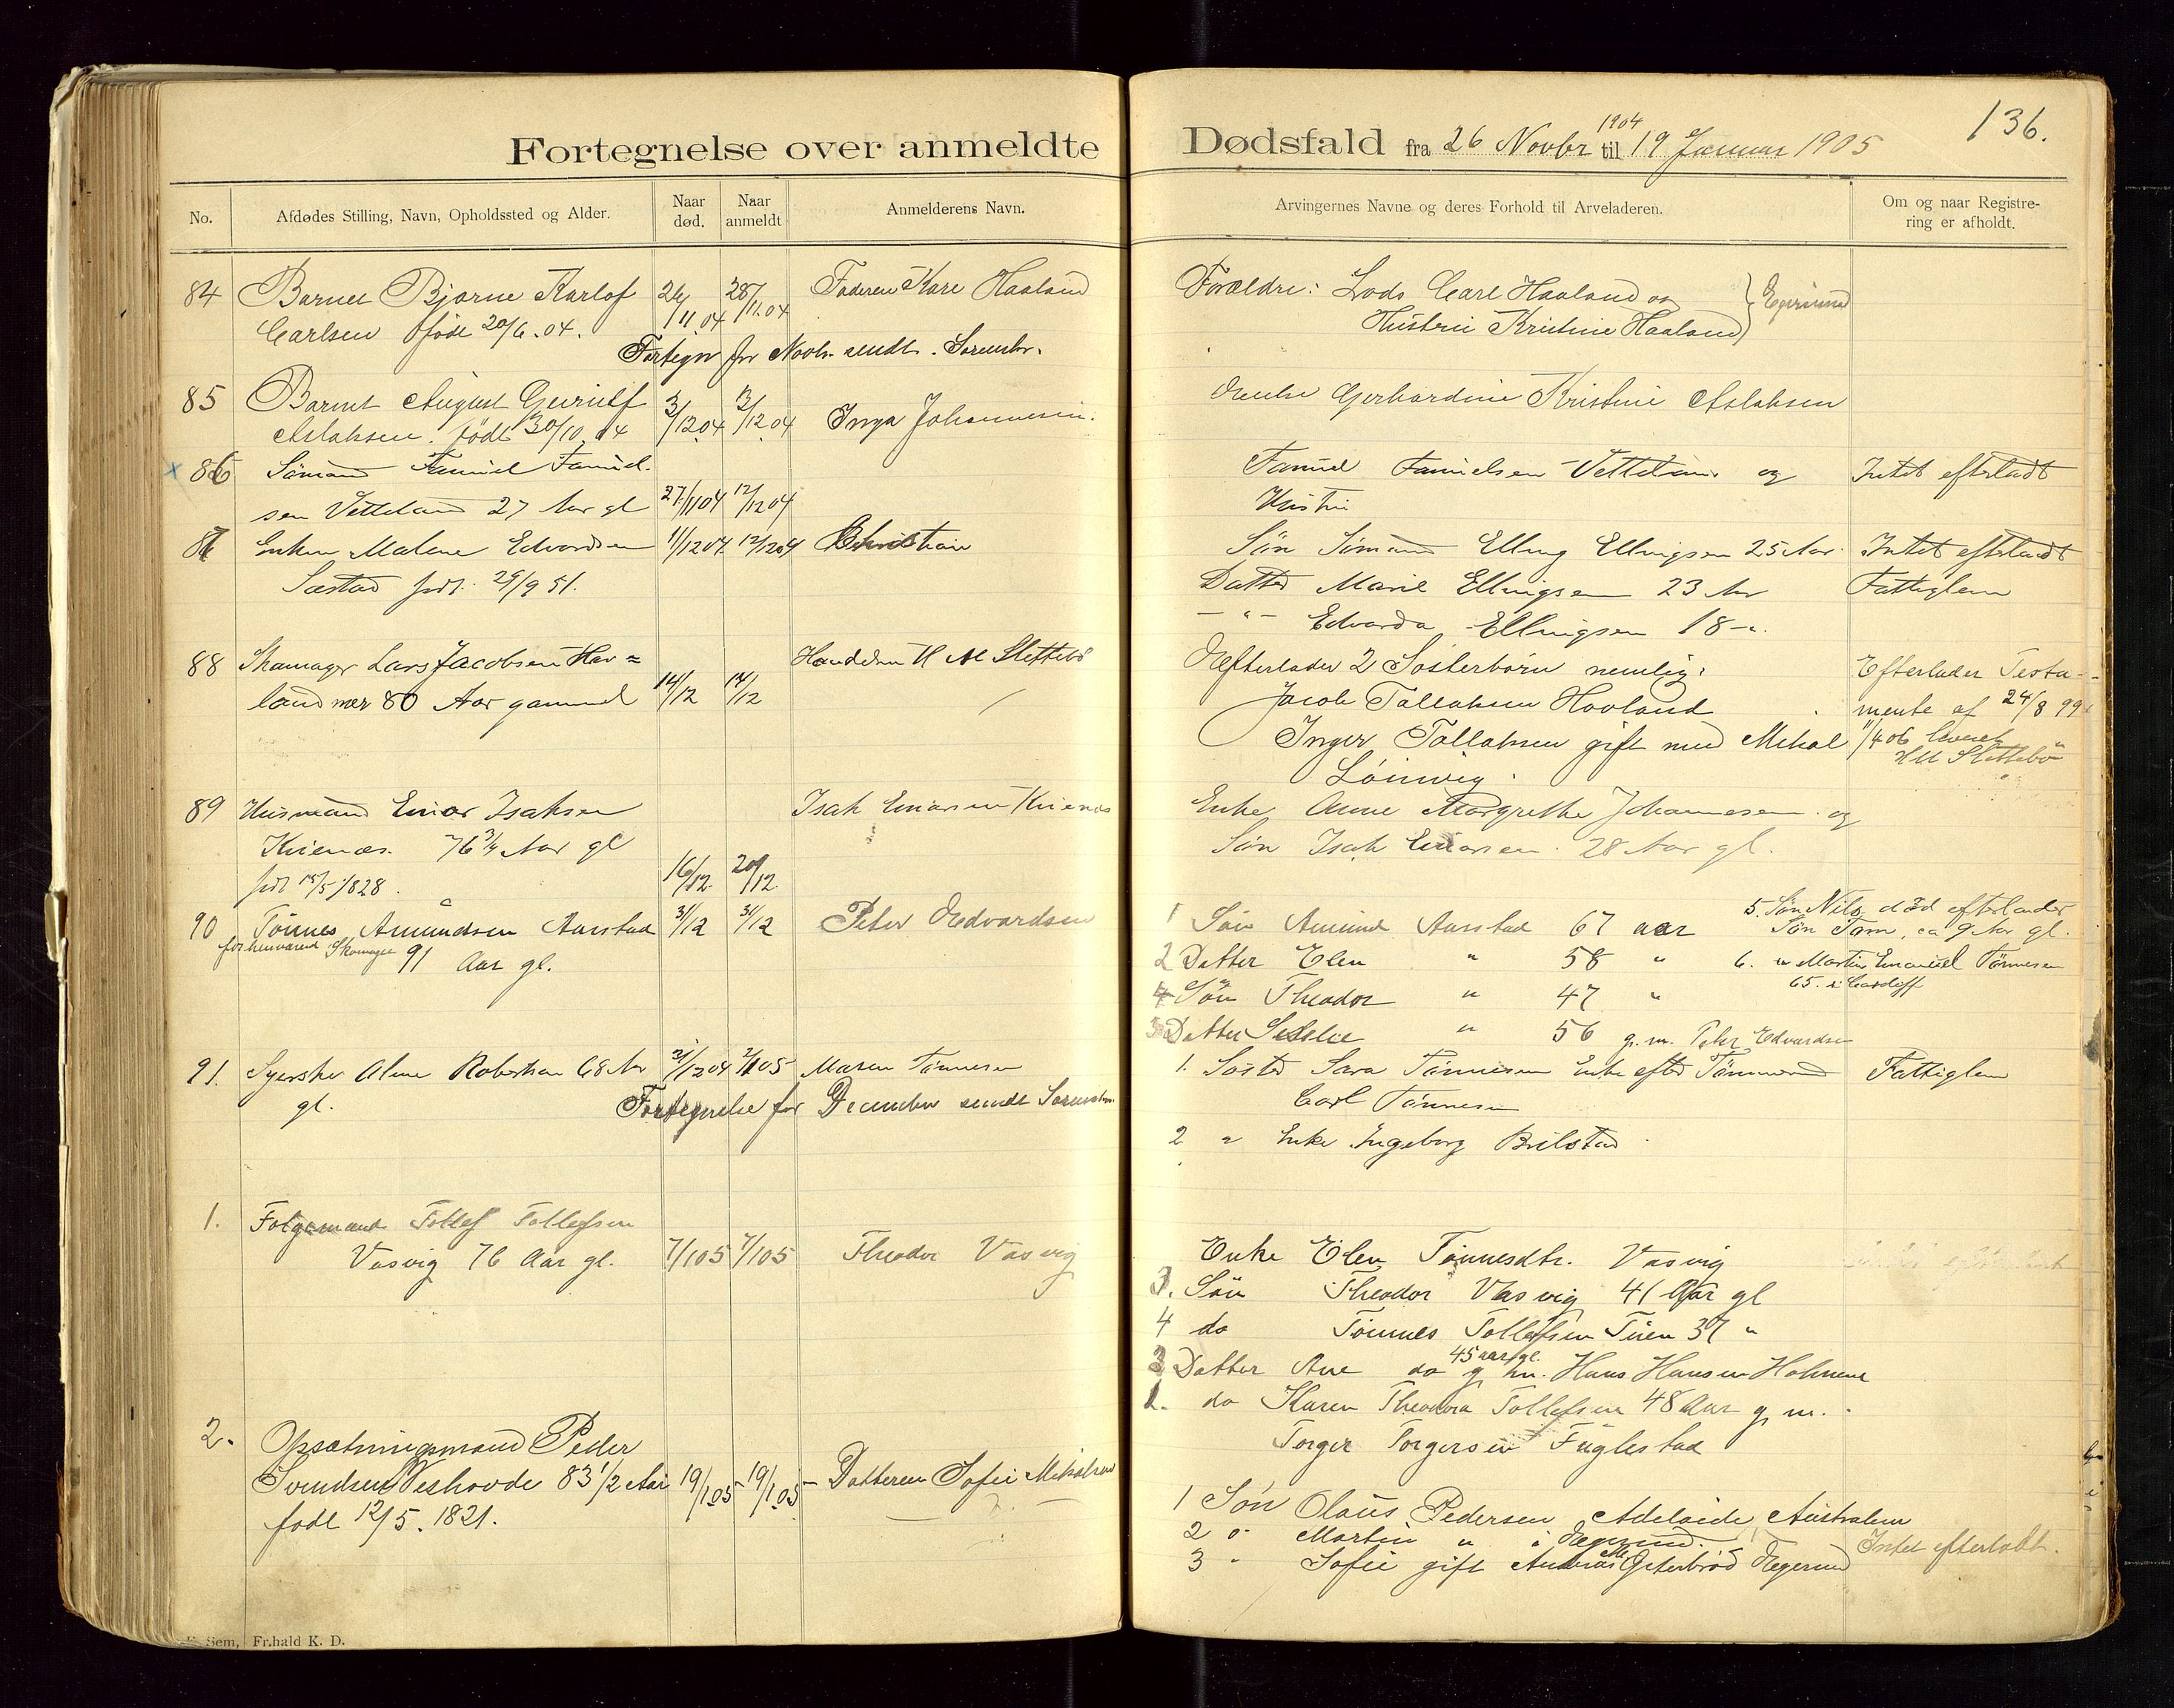 136.
Fortegnelse over anmeldte Dødsfald fra 26 Novbr 1904 til 19 Januar 1905
No. Afdødes Stilling, Navn, Opholdssted og Alder. Naar død. Naar anmeldt Anmelderens Navn. Arvingernes Navne og deres Forhold til Arveladeren. Om og naar Registrering er afholdt.
84 Barnet Bjarne Karlof 28/11.04 Faderen Kare Haaland Forældre: Lods Carl Haaland og
Carlsen født 20/6.04. Hustru Kristine Haaland
Fortegn for Novbr. sendt. Sorenskr.
85 Barnet August 3/12 04 Inga Johannesen. Gerhardine Kristine Aslaksen
Aslaksen. født 30/10.04
86 Sömand Tarald Tarald- 27/11 04 12/12 04 Vetteland og Intet efterladt
sen Vetteland 27 Aar gl Hustru
87 Enken Malene Edvardsen 11/12 04 12/12 04 Christian Sön Sömand Elling Ellingsen 25 Aar Intet efterladt
Sæstad født 29/9 51. Datter Marie Ellingsen 23 Aar Fattiglem
— " — Edvarda Ellingsen 18 — "
88 Skomager Lars Jacobsen Hav= 14/12 14/12 H M Slettebø Efterlader 2 Søsterbørn nemlig: Efterlader Testa-
land nær 80 Aar gammel Jacob Tollaksen Hovland mente af 24/8 99
Inger Tollaksen gift med Mikal 11/4 06
H M Slettebø
89 Husmand Einar Isaksen Isak Einarsen Kvienes Enke Anne Margrethe Johannesen og
Kvienes. 76 3/4 Aar gl 16/12 20/12 Sön Isak Einarsen 28 Aar gl.
født 15/5 1828.
90 Tönnes Amundsen Aarstad 31/12 31/12 Peter Edvardsen 1 Sön Amund Aarstad 67 aar 5. Sön Nils död efterlader
forhenværend Skomager 91 Aar gl. Sön Tom, ca 9 Aar gl.
2 Datter Elen " 58 " 6. " Martin Emanuel Tönnesen
65. i Cardiff
4 Sön Theodor " 47 "
3 Datter " 56 g. m. Peter Edvardsen
91. Syerske Robertsen 68 Aar 31/12 04 2/1 05 Maren Tönnesen 1. Söster Sara Tönnesen Enke efter Tömmermand Fattiglem
gl. Carl Tönnesen
Fortegnelse for December sendt Sorenskr.
2 " Enke Ingeborg Brilstad
1. Følgemand Tollef Tollefsen
Vasvig 76 Aar gl. 7/1 05 7/1 05 Theodor Vasvig Enke Elen Tönnesdtr. Vasvig
3. Sön Theodor Vasvig 41 Aar gl
4 do Tönnes Tollefsen 37 "
2 Datter Ane do 45 aar gl. g. m. Hans Hansen
1. do Karen Theodora Tollefsen 48 Aar g. m.
Torger Torgersen Fuglestad
2. Opsætningsmand Peder
Svendsen 83 1/2 Aar 19/1.05 — 19/1.05 — Datteren Sofie
født 12/5. 1821.
1 Søn Olaus Pedersen Adelaide Australien
2 " Martin " i Egersund. Intet efterladt.
3 " Sofie gift Egersund
Sem, Fr.hald K. D.